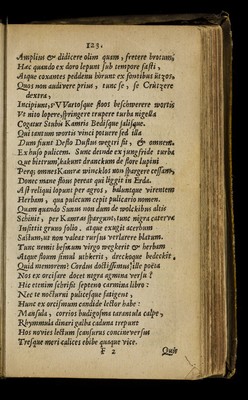 123.
Amplius & didicere olim quam, fretere brocum,
Hac quando ex dora lepunt sub tempore fasti,
Atque coxantes peddenu borunt ex fontibus ützos,
Quos non audivere prius, tunc se, se Crützere
dextra,
Incipiunt, vVVartosque floos beschwerere wortis
Ut nito lopere, springere trupere turba nigella
Cogatur Stubis Kamris Bedisque salisque.
Qui tantum wortis vinci potuere sed illa
Dum fiunt Desto Dustus wegtri sit, & omnem
Ex huso pulicem. Sunc deinde ex jungfride turba
Quæ bistrum, kahunt dranckum de flore lupini
Perq; omnes Kamræ wincklos non spargere cessant,
Donec mane floos poteas qui liggit in Erda.
Ast reliqui lopunt per agros, baluntque virentem
Herbam, qua pulecum cepit pulicario nomen.
Quam quando Sunus non dum de wolckibus altis
Schinit, per Kamras spargunt, tunc nigra caterva
Insistit gruno folio, atque exugit acerbum
Saltum, ut non valeat rursus verlarere blatum.
Tunc nemt besmum virgo wegkerit & herbam
Atque floam simul uthkerit, dreckoque bedeckit.
Quid memorem? Cordus doctissimus, ille poëta
Nos ex orcisare docet nigra agmina versu!
Hic etenim schrifft septeno carmina libro:
Nec te nocturni pulicesque fatigent,
Hunc ex orcismum candide lector habe:
Mansula, corrios budigosma tarantula calpe,
Rhymmula dinari galba caduna trepunt
Hos novies lectum scansurus concineversus
Tresque meri calices ebibe quoque vice.
F 2 Quis